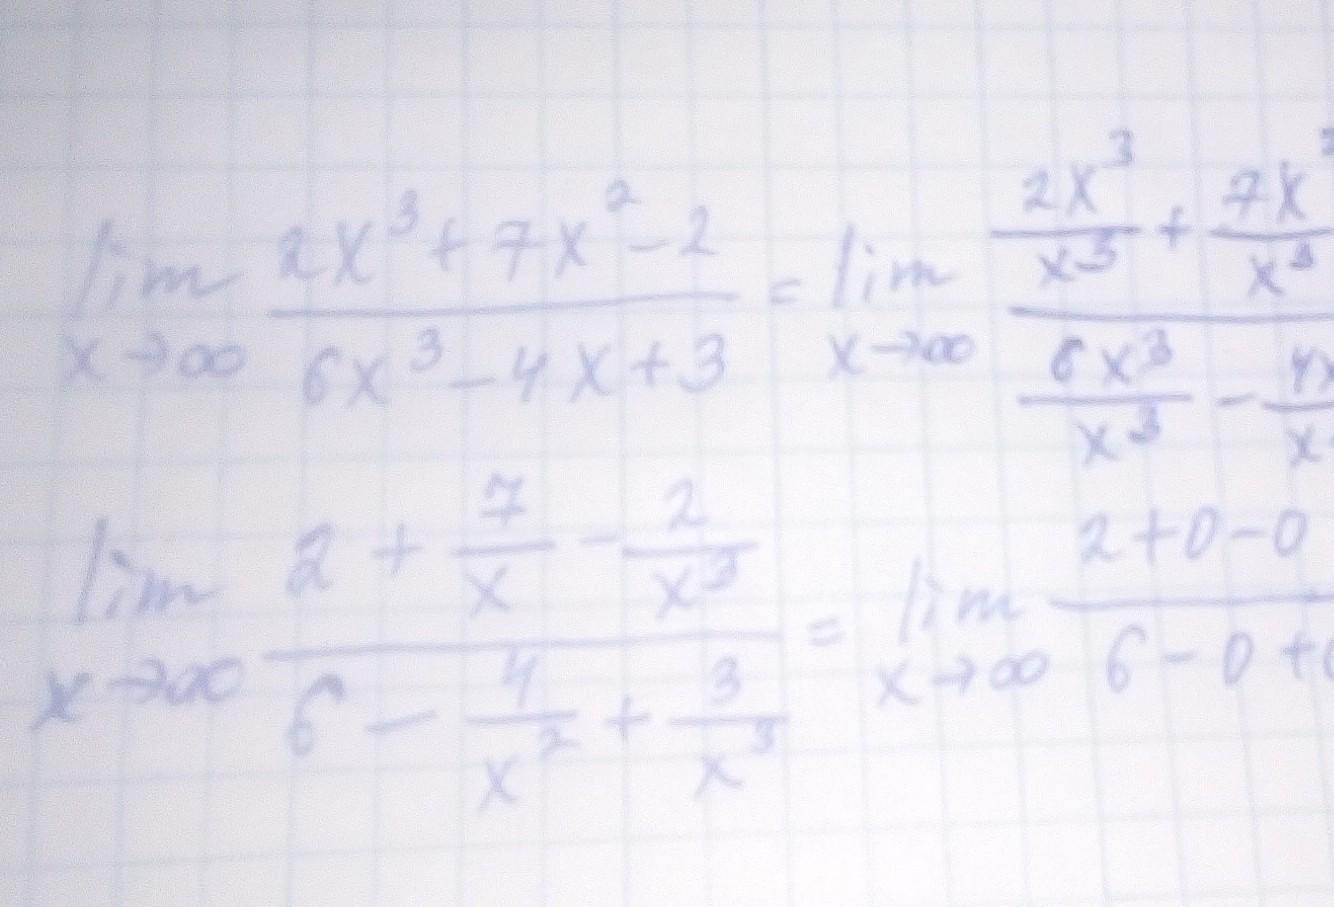 lim x→∞ (2x³ + 7x² - 2) / (6x³ - 4x + 3) = lim x→∞ (2x³/x³ + 7x/x³) / (6x³/x³ - 4x/x)
lim x→∞ (2 + 7/x - 2/x³) / (6 - 4/x² + 3/x³) = lim x→∞ (2+0-0) / (6-0+